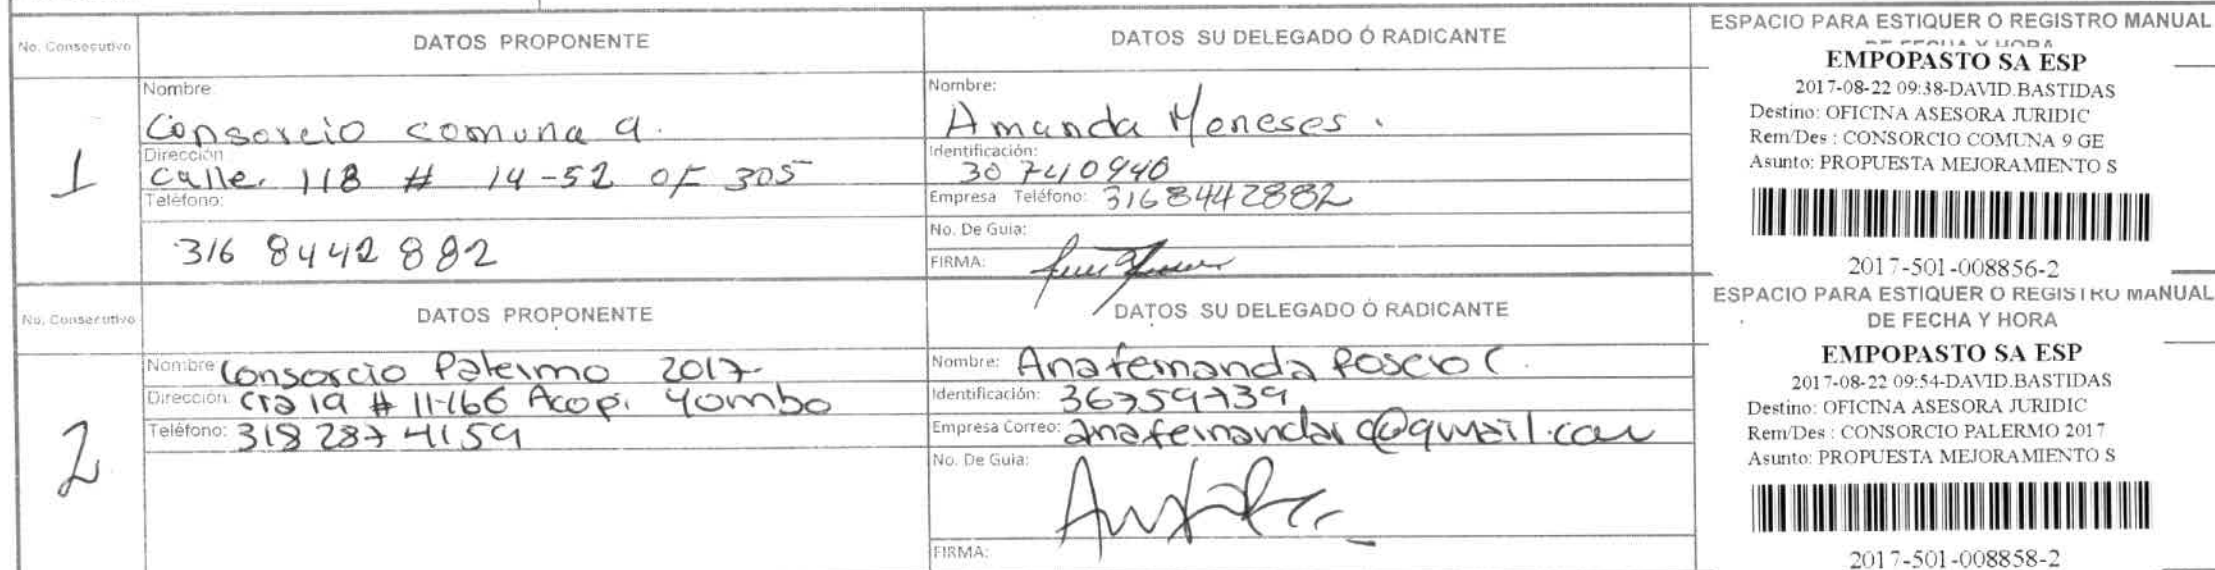 No. Consecutivo
DATOS PROPONENTE
DATOS SU DELEGADO Ó RADICANTE
ESPACIO PARA ESTIQUER O REGISTRO MANUAL
DE FECHA Y HORA
1
Nombre
Consorcio comuna 9.
Dirección
Calle. 118 # 14-52 OF 305
Teléfono:
316 8442882
Nombre:
Amanda Meneses.
Identificación:
30740940
Empresa Teléfono: 3168442882
No. De Guia:
FIRMA:
EMPOPASTO SA ESP
2017-08-22 09:38-DAVID.BASTIDAS
Destino: OFICINA ASESORA JURIDIC
Rem/Des : CONSORCIO COMUNA 9 GE
Asunto: PROPUESTA MEJORAMIENTO S
2017-501-008856-2
No. Consecutivo
DATOS PROPONENTE
DATOS SU DELEGADO Ó RADICANTE
ESPACIO PARA ESTIQUER O REGISTRO MANUAL
DE FECHA Y HORA
2
Nombre Consorcio Palermo 2017
Dirección: cra 19 # 11-166 Acopi Yombo
Teléfono: 318 287 4159
Nombre: Ana fernanda C.
Identificación: 36759739
Empresa Correo:
No. De Guia:
FIRMA:
EMPOPASTO SA ESP
2017-08-22 09:54-DAVID.BASTIDAS
Destino: OFICINA ASESORA JURIDIC
Rem/Des : CONSORCIO PALERMO 2017
Asunto: PROPUESTA MEJORAMIENTO S
2017-501-008858-2